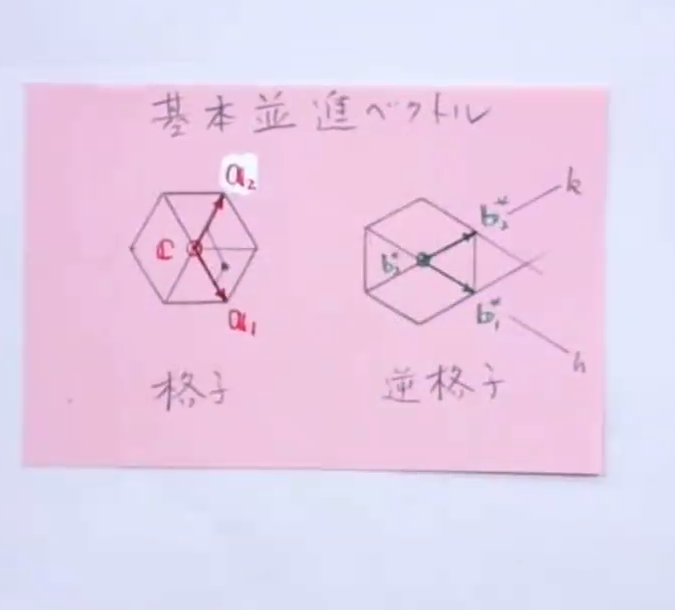 基本並進ベクトル
a₂
c
a₁
格子
k
b₂*
b₃*
b₁*
h
逆格子